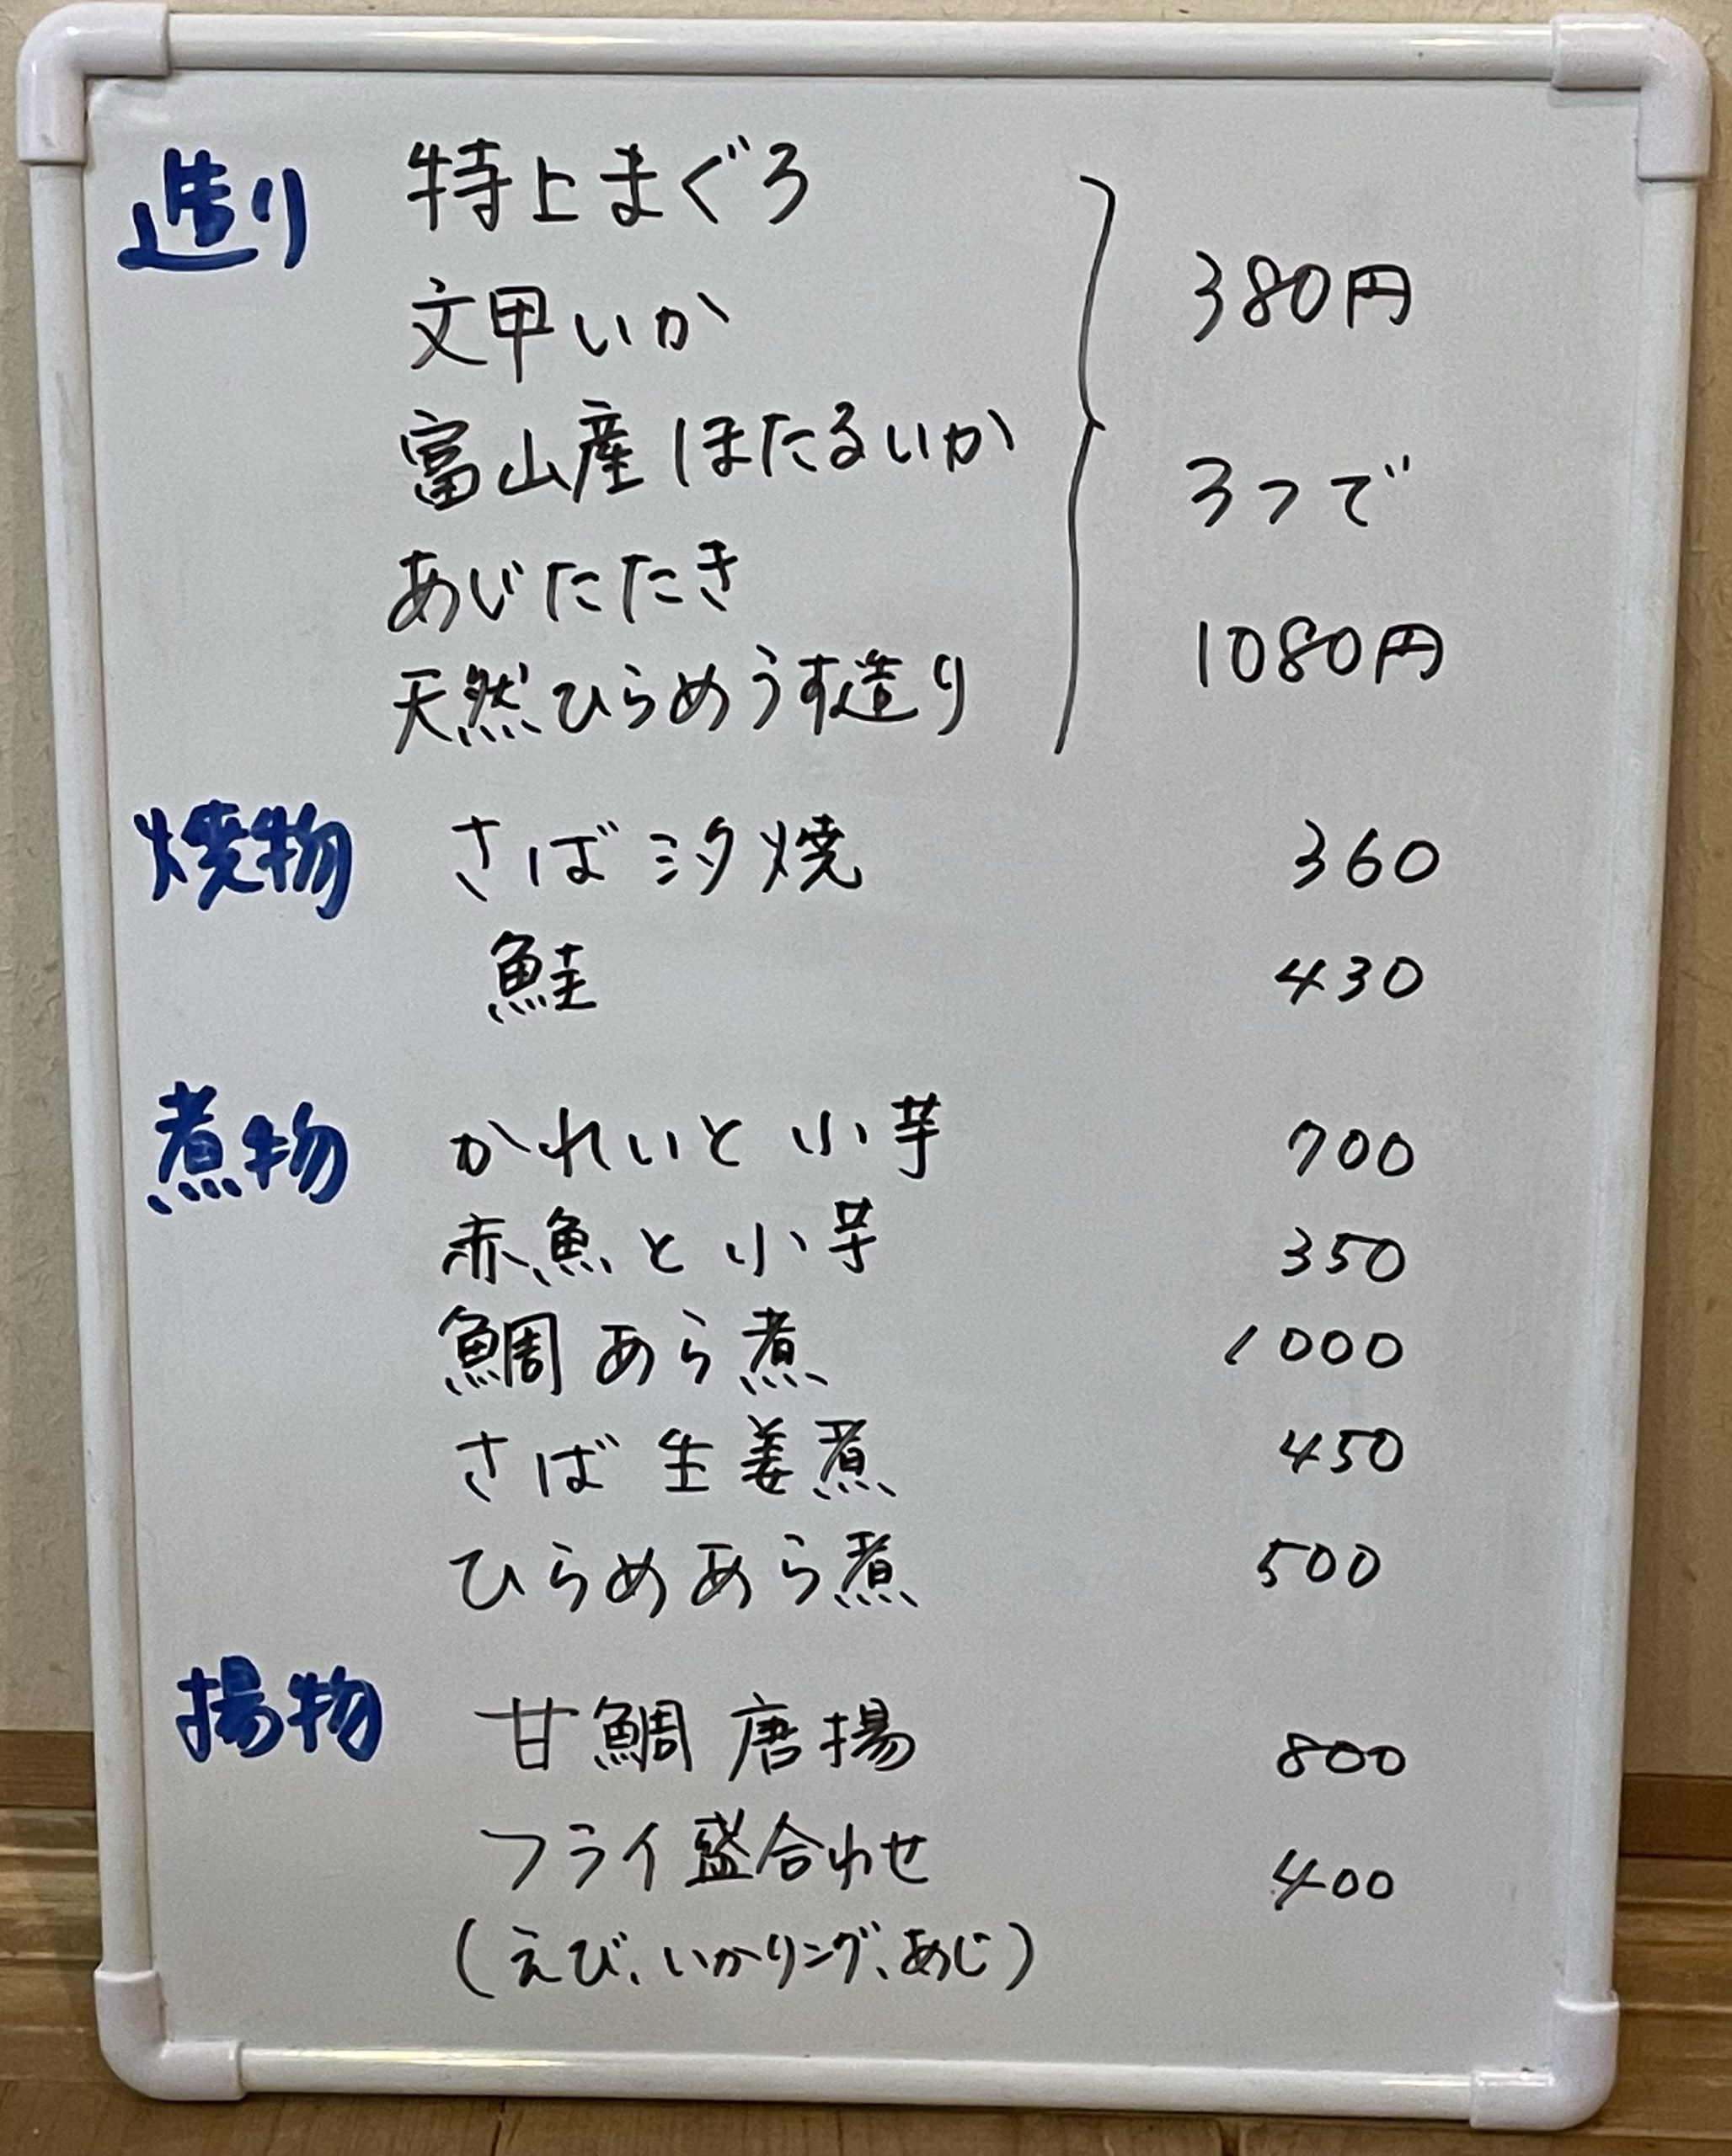 造り 特上まぐろ
文甲いか 380円
富山産ほたるいか 3つで
あじたたき
天然ひらめうす造り 1080円
焼物 さば汐焼 360
鮭 430
煮物 かれいと小芋 700
赤魚と小芋 350
鯛あら煮 1000
さば生姜煮 450
ひらめあら煮 500
揚物 甘鯛唐揚 800
フライ盛合わせ 400
(えび、いかリング、あじ)